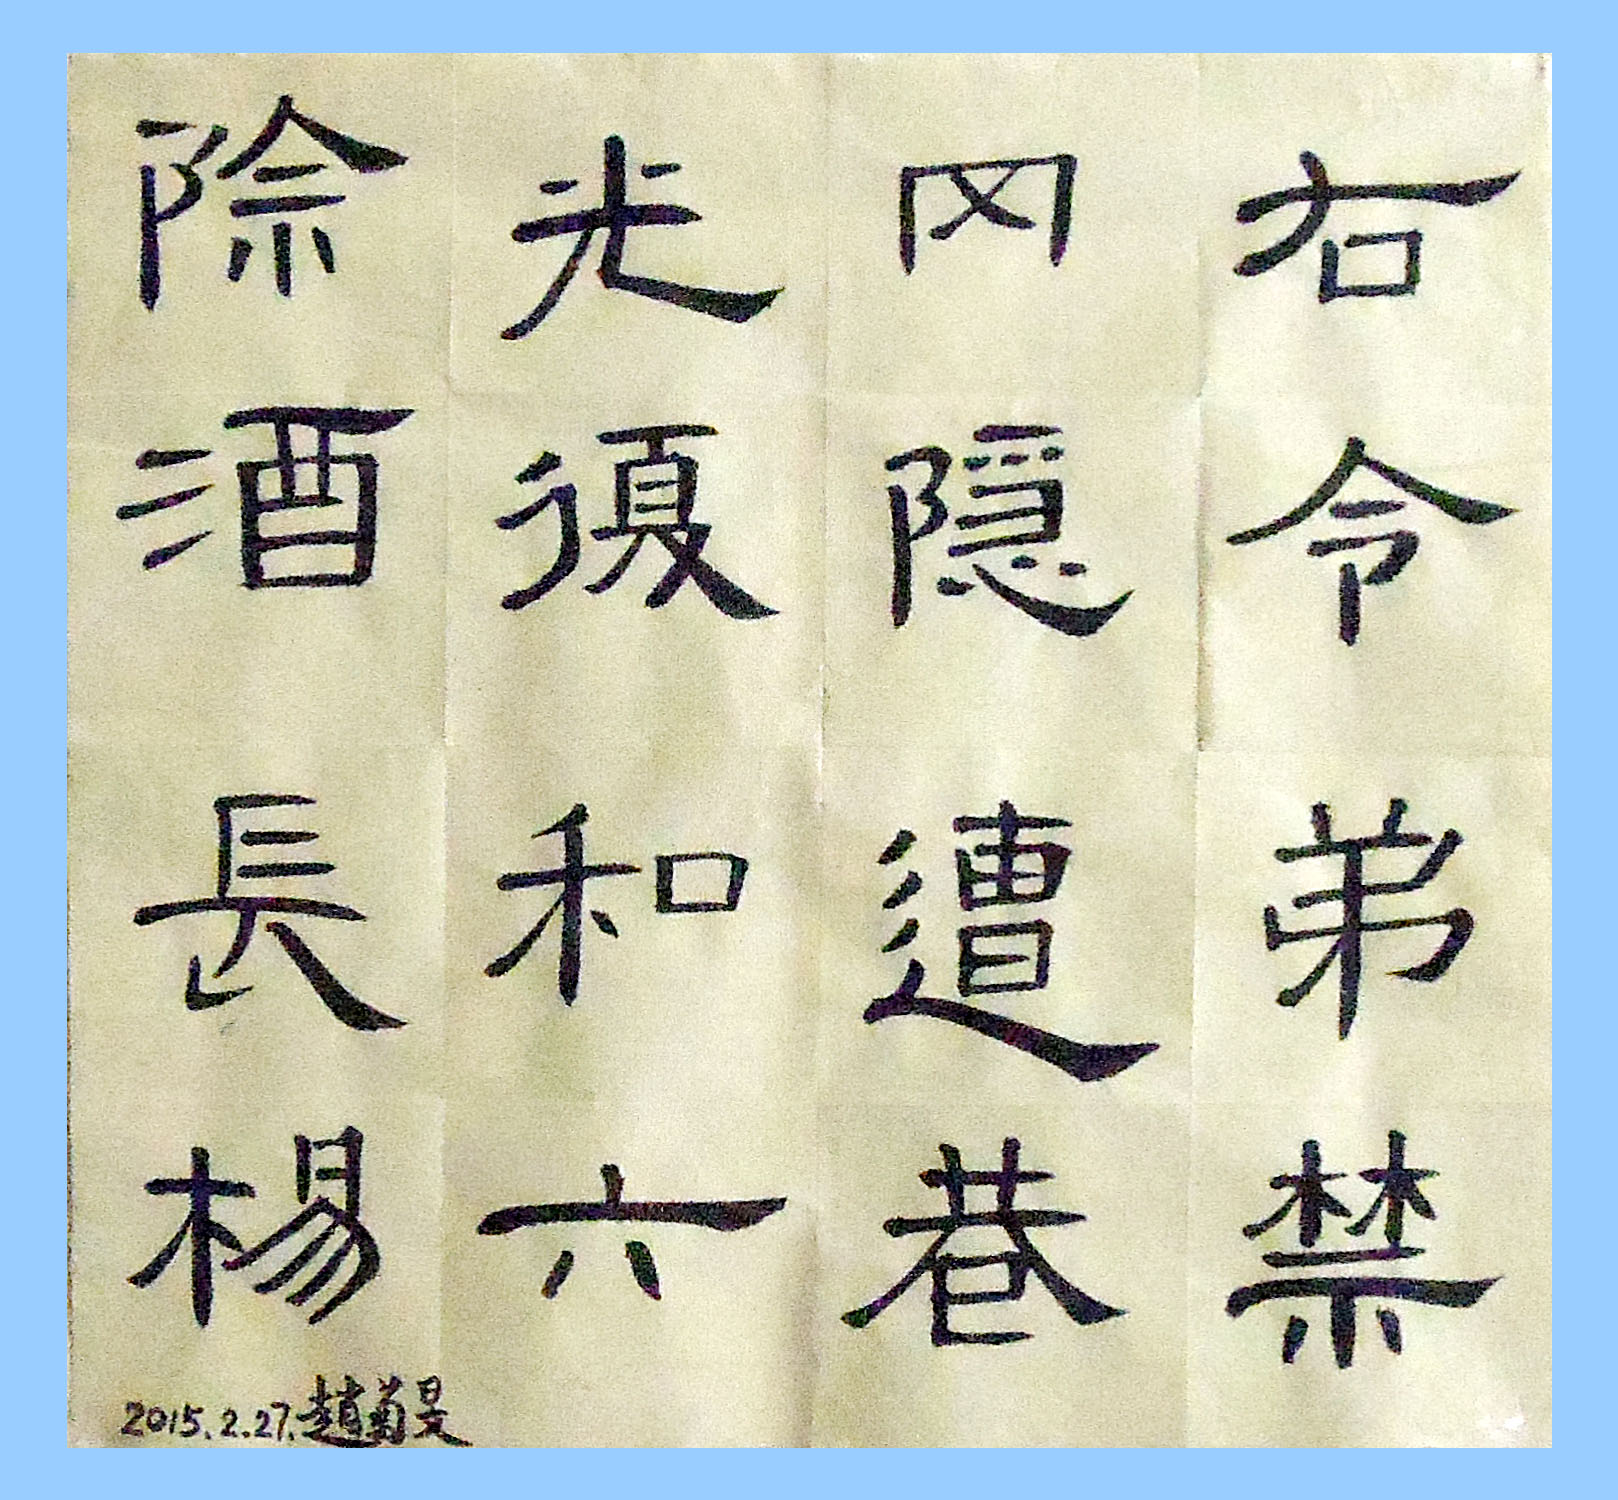 右令弟禁
冈隱遭巷
光復和六
除酒長楊
2015.2.27.趙菊旻